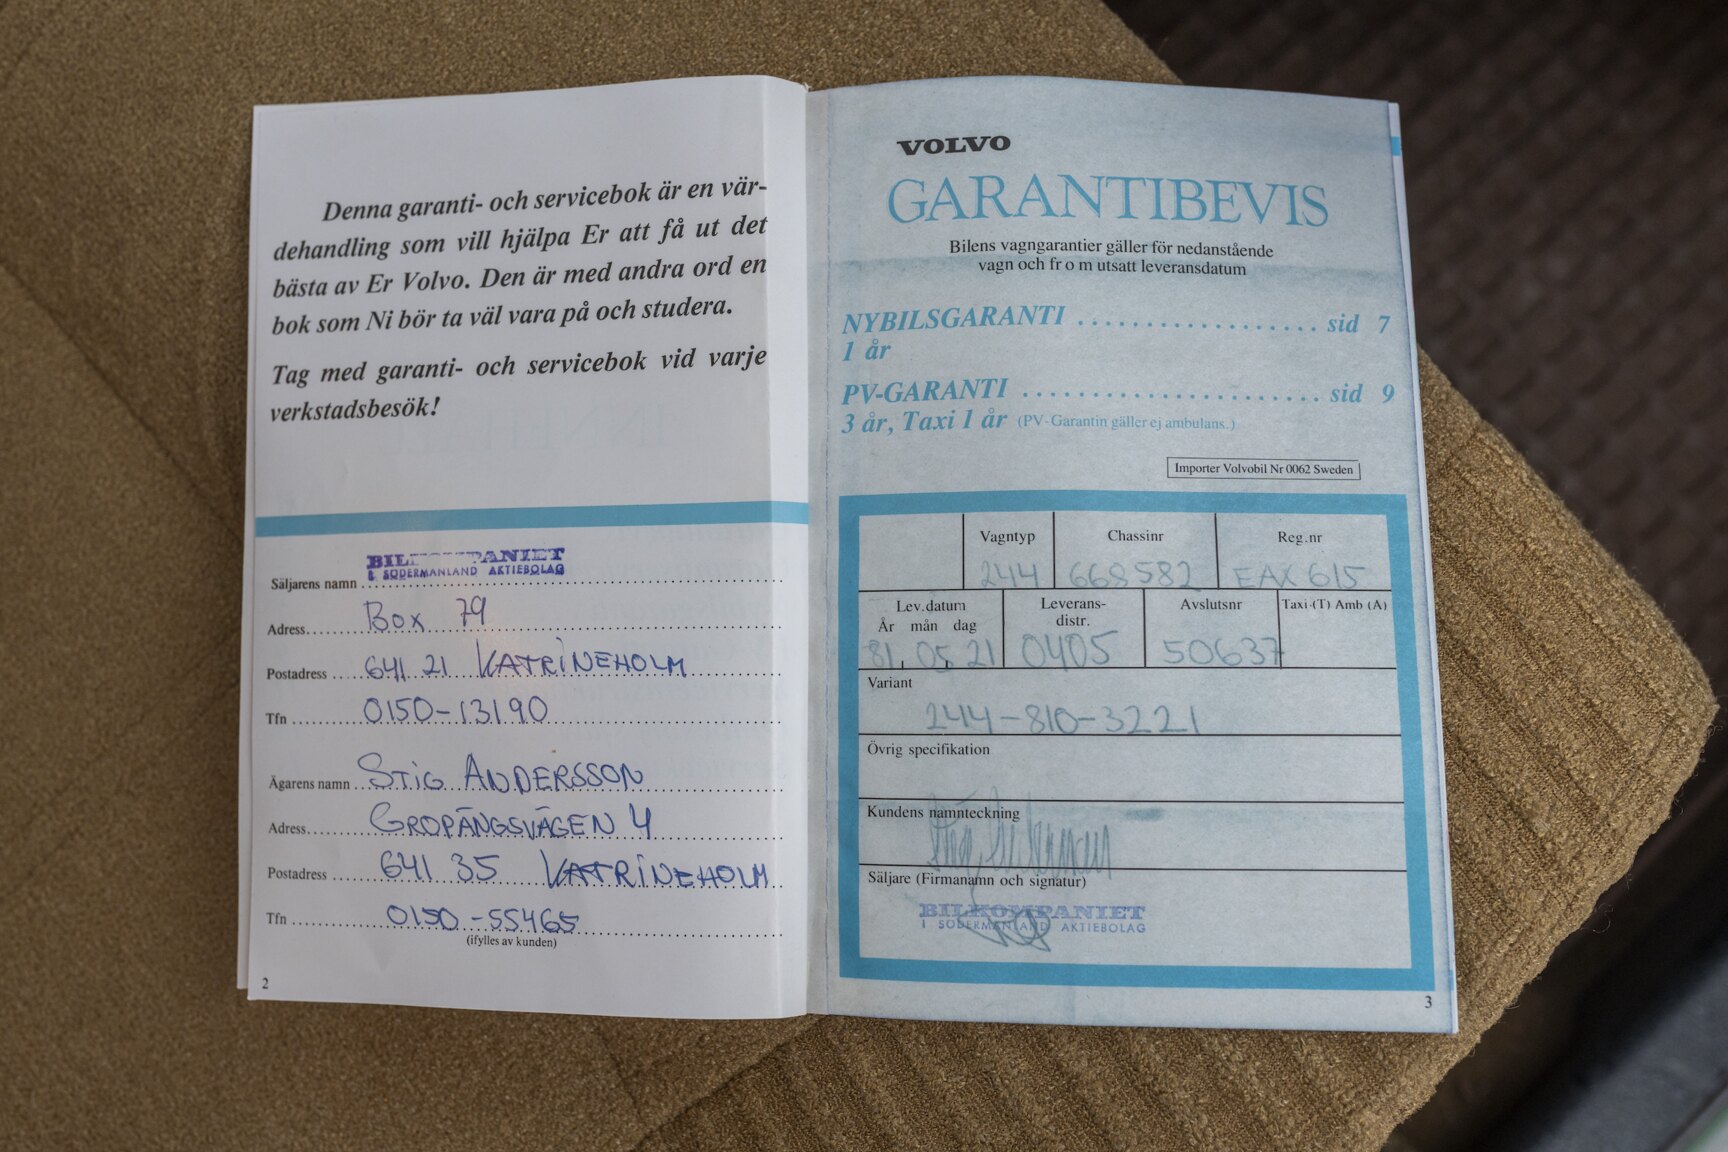 Denna garanti- och servicebok är en vär-
dehandling som vill hjälpa Er att få ut det
bästa av Er Volvo. Den är med andra ord en
bok som Ni bör ta väl vara på och studera.
Tag med garanti- och servicebok vid varje
verkstadsbesök!
BILKOMPANIET
I SÖDERMANLAND AKTIEBOLAG
Säljarens namn
Adress Box 79
Postadress 641 21 KATRINEHOLM
Tfn 0150-13190
Ägarens namn STIG ANDERSSON
Adress GROPÄNGSVÄGEN 4
Postadress 641 35 KATRINEHOLM
Tfn 0150-55465
(ifylles av kunden)
2
VOLVO
GARANTIBEVIS
Bilens vagngarantier gäller för nedanstående
vagn och fr o m utsatt leveransdatum
NYBILSGARANTI sid 7
1 år
PV-GARANTI sid 9
3 år, Taxi 1 år (PV-Garantin gäller ej ambulans.)
Importer Volvobil Nr 0062 Sweden
Vagntyp Chassinr Reg.nr
244 668582 EAX 615
Lev.datum Leverans- Avslutsnr Taxi-(T) Amb (A)
År mån dag distr.
81 05 21 0405 50637
Variant
244-810-3221
Övrig specifikation
Kundens namnteckning
Säljare (Firmanamn och signatur)
BILKOMPANIET
I SÖDERMANLAND AKTIEBOLAG
3